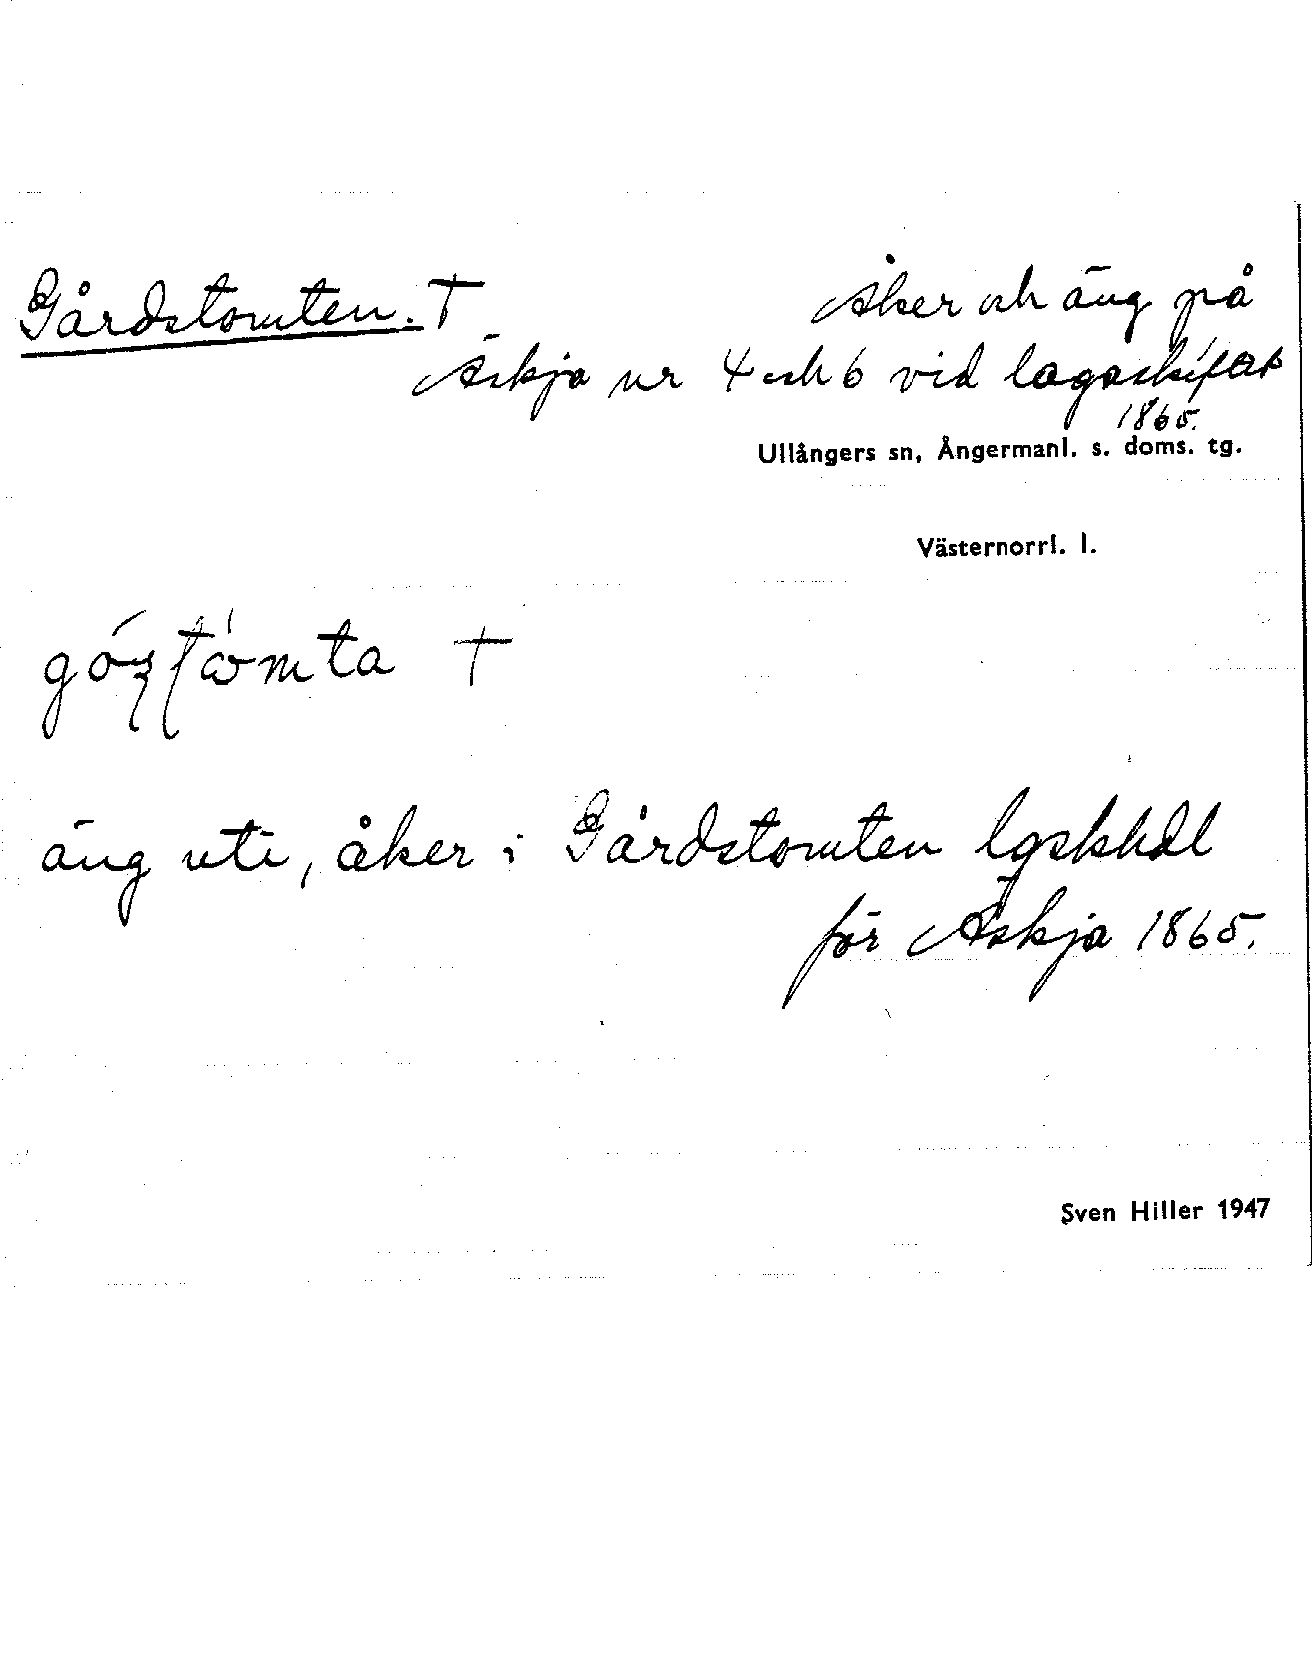 Gårdstomten. † Åker och äng på
Äskja nr 4 och 6 vid lagaskiftet
1865.
Ullångers sn, Ångermanl. s. doms. tg.
Västernorrl. l.
†
äng uti, åker i Gårdstomten lgskhdl
för Äskja 1865.
Sven Hiller 1947